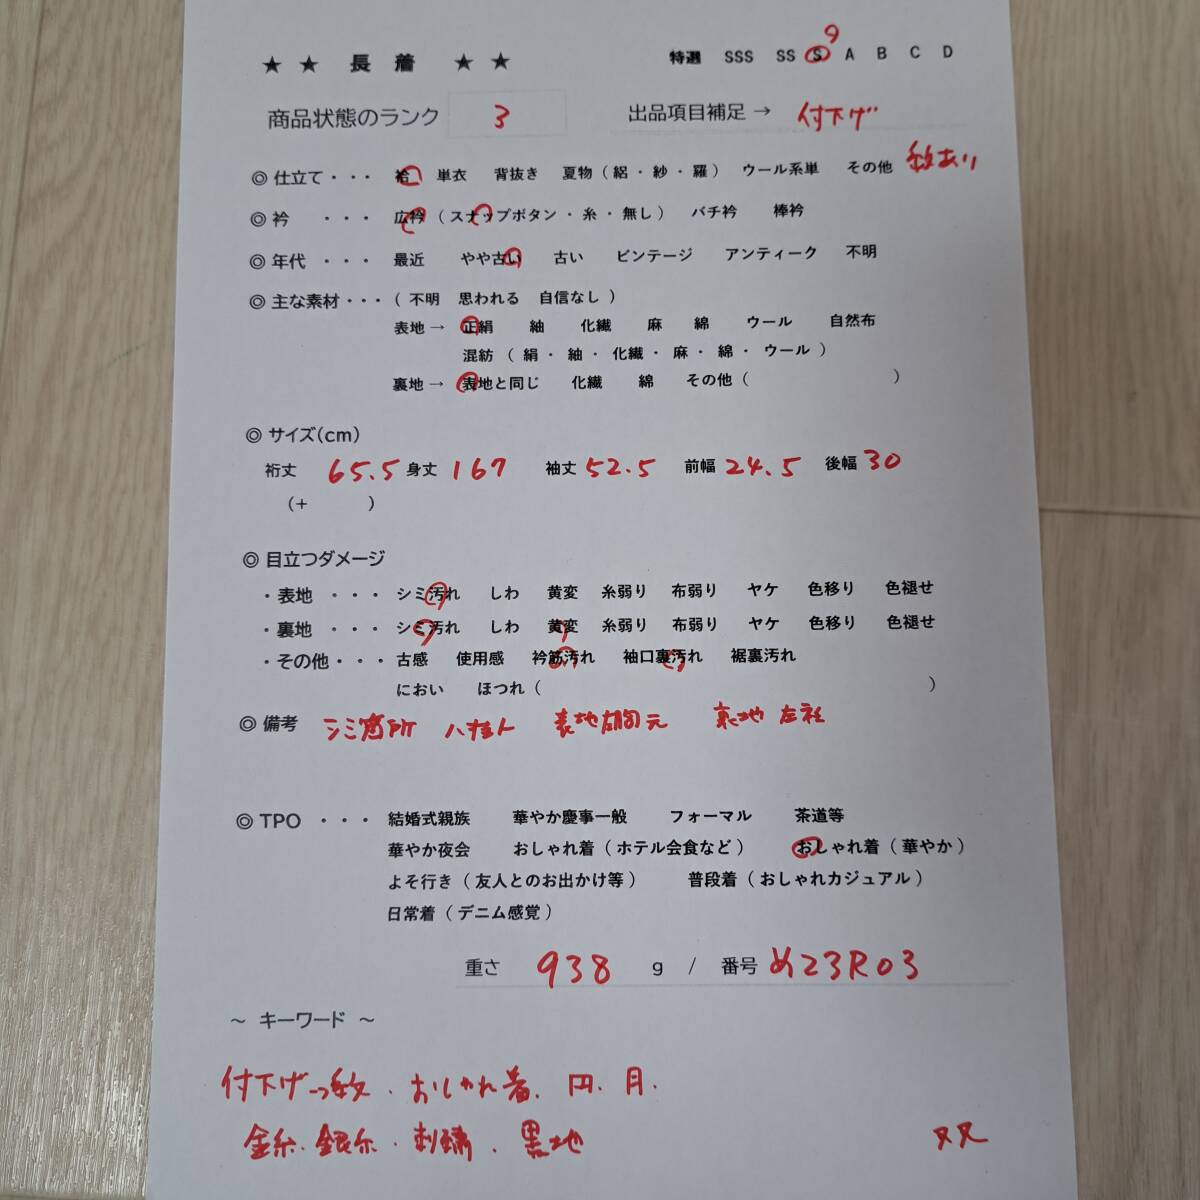 ★ ★ 長 着 ★ ★ 特選 SSS SS S A B C D
商品状態のランク 3 出品項目補足 → 付下げ
紋あり
◎ 仕立て・・・ 袷 単衣 背抜き 夏物(絽・紗・羅) ウール系単 その他
◎ 衿 ・・・ 広衿(スナップボタン・糸・無し) バチ衿 棒衿
◎ 年代 ・・・ 最近 やや古い 古い ビンテージ アンティーク 不明
◎ 主な素材・・・ (不明 思われる 自信なし)
表地 → 正絹 紬 化繊 麻 綿 ウール 自然布
混紡(絹・紬・化繊・麻・綿・ウール)
裏地 → 表地と同じ 化繊 綿 その他( )
◎ サイズ(cm)
裄丈 65.5 身丈 167 袖丈 52.5 前幅 24.5 後幅 30
(+ )
◎ 目立つダメージ
・表地 ・・・ シミ汚れ しわ 黄変 糸弱り 布弱り ヤケ 色移り 色褪せ
・裏地 ・・・ シミ汚れ しわ 黄変 糸弱り 布弱り ヤケ 色移り 色褪せ
・その他・・・ 古感 使用感 衿筋汚れ 袖口裏汚れ 裾裏汚れ
におい ほつれ( )
◎ 備考 シミ箇所 八掛 表地胸元 裏地
◎ TPO ・・・ 結婚式親族 華やか慶事一般 フォーマル 茶道等
華やか夜会 おしゃれ着(ホテル会食など) おしゃれ着(華やか)
よそ行き(友人とのお出かけ等) 普段着(おしゃれカジュアル)
日常着(デニム感覚)
重さ 938 g / 番号 め23R03
~ キーワード ~
付下げ一つ紋・おしゃれ着・円・月・
金糸・銀糸・刺繍・黒地